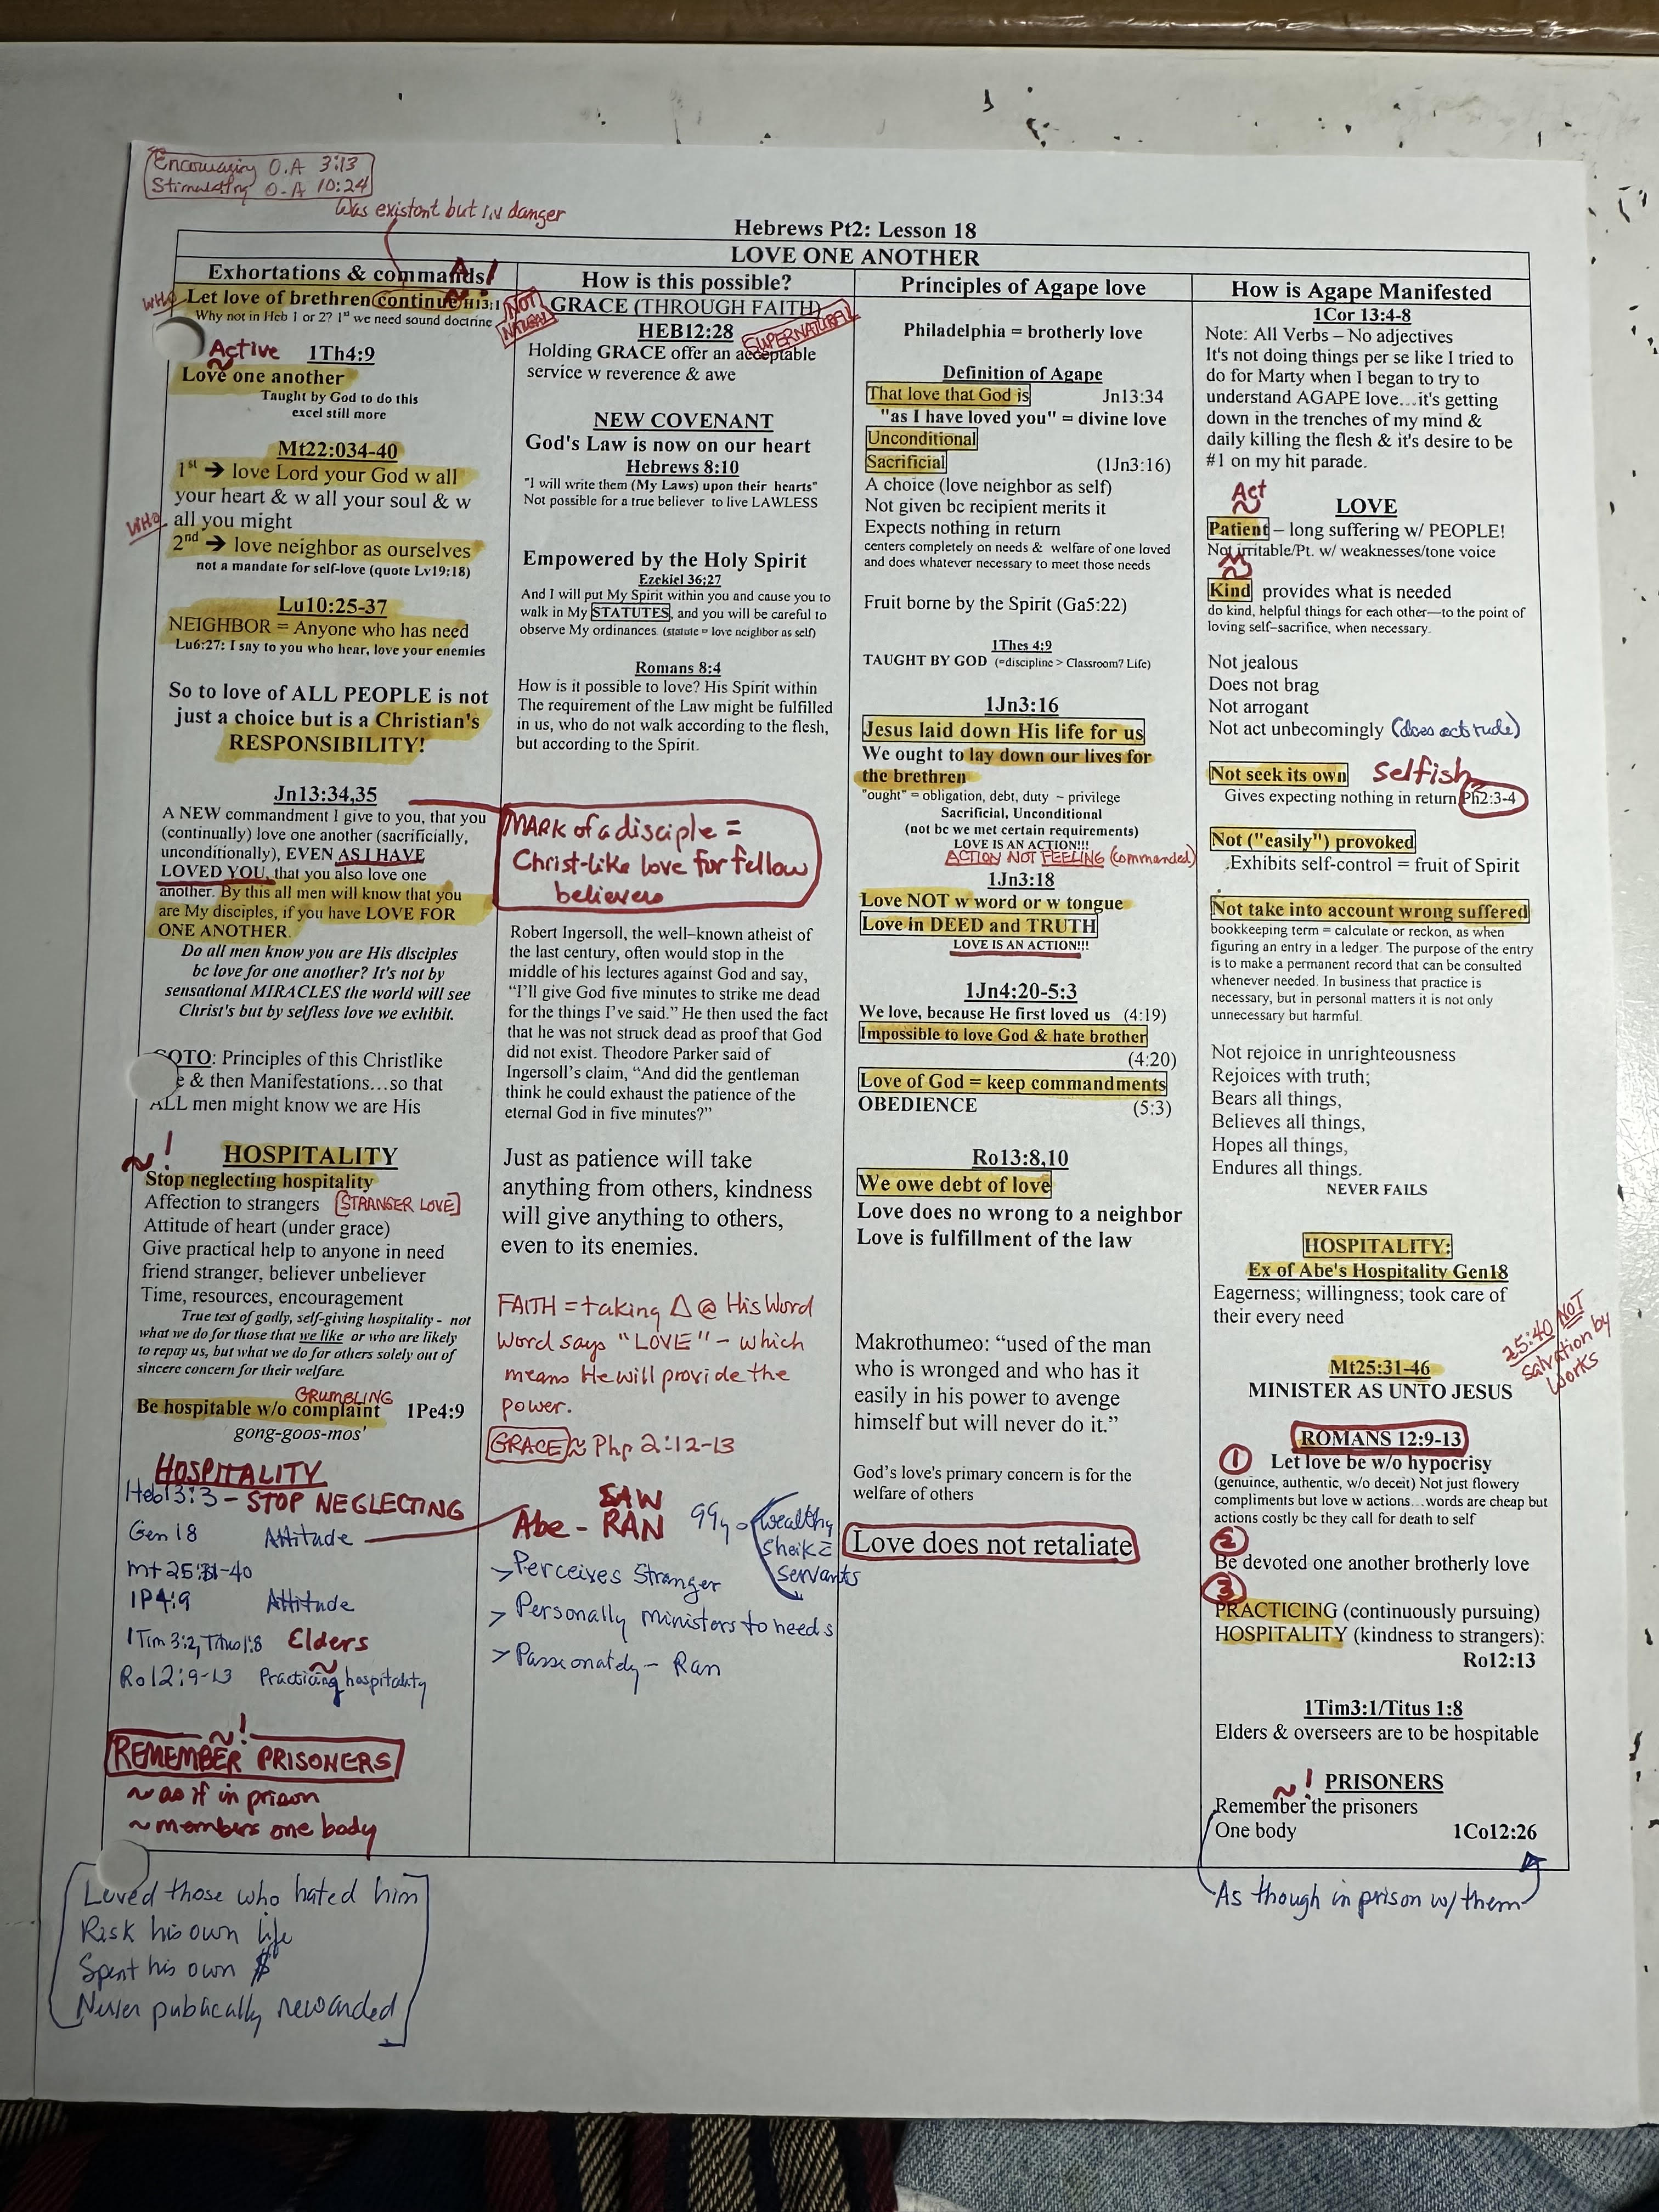 Encouraging O.A 3:13
Stimulating O.A 10:24
Was existent but in danger
Hebrews Pt2: Lesson 18
LOVE ONE ANOTHER
Exhortations & commands!
WHO
Let love of brethren continue H13:1
Why not in Heb 1 or 2? 1st we need sound doctrine
Active
1Th4:9
Love one another
Taught by God to do this
excel still more
Mt22:034-40
1st ➔ love Lord your God w all
your heart & w all your soul & w
all you might
WHO
2nd ➔ love neighbor as ourselves
not a mandate for self-love (quote Lv19:18)
Lu10:25-37
NEIGHBOR = Anyone who has need
Lu6:27: I say to you who hear, love your enemies
So to love of ALL PEOPLE is not
just a choice but is a Christian's
RESPONSIBILITY!
Jn13:34,35
A NEW commandment I give to you, that you
(continually) love one another (sacrificially,
unconditionally), EVEN AS I HAVE
LOVED YOU, that you also love one
another. By this all men will know that you
are My disciples, if you have LOVE FOR
ONE ANOTHER.
Do all men know you are His disciples
bc love for one another? It's not by
sensational MIRACLES the world will see
Christ's but by selfless love we exhibit.
GOTO: Principles of this Christlike
e & then Manifestations…so that
ALL men might know we are His
!
HOSPITALITY
Stop neglecting hospitality
Affection to strangers [STRANGER LOVE]
Attitude of heart (under grace)
Give practical help to anyone in need
friend stranger, believer unbeliever
Time, resources, encouragement
True test of godly, self-giving hospitality - not
what we do for those that we like or who are likely
to repay us, but what we do for others solely out of
sincere concern for their welfare.
GRUMBLING
Be hospitable w/o complaint 1Pe4:9
gong-goos-mos'
HOSPITALITY
Heb13:3 - STOP NEGLECTING
Gen 18 Attitude
Mt 25:31-40
1P4:9 Attitude
1Tim 3:2, Titus 1:8 Elders
Ro12:9-13 Practicing hospitality
!
REMEMBER PRISONERS
~ as if in prison
~ members one body
Loved those who hated him
Risk his own life
Spent his own $
Never publically rewarded
How is this possible?
NOT NATURAL
GRACE (THROUGH FAITH)
HEB12:28
SUPERNATURAL
Holding GRACE offer an acceptable
service w reverence & awe
NEW COVENANT
God's Law is now on our heart
Hebrews 8:10
"I will write them (My Laws) upon their hearts"
Not possible for a true believer to live LAWLESS
Empowered by the Holy Spirit
Ezekiel 36:27
And I will put My Spirit within you and cause you to
walk in My STATUTES, and you will be careful to
observe My ordinances. (statute = love neighbor as self)
Romans 8:4
How is it possible to love? His Spirit within
The requirement of the Law might be fulfilled
in us, who do not walk according to the flesh,
but according to the Spirit.
MARK of a disciple =
Christ-like love for fellow
believers
Robert Ingersoll, the well–known atheist of
the last century, often would stop in the
middle of his lectures against God and say,
“I’ll give God five minutes to strike me dead
for the things I’ve said.” He then used the fact
that he was not struck dead as proof that God
did not exist. Theodore Parker said of
Ingersoll’s claim, “And did the gentleman
think he could exhaust the patience of the
eternal God in five minutes?”
Just as patience will take
anything from others, kindness
will give anything to others,
even to its enemies.
FAITH = taking Δ @ His Word
Word says "LOVE" - which
means He will provide the
power.
GRACE ≈ Php 2:12-13
SAW
Abe - RAN
99y o
wealthy
sheik c̄
servants
> Perceives Stranger
> Personally ministers to needs
> Passionately - Ran
Principles of Agape love
Philadelphia = brotherly love
Definition of Agape
That love that God is Jn13:34
"as I have loved you" = divine love
Unconditional
Sacrificial (1Jn3:16)
A choice (love neighbor as self)
Not given bc recipient merits it
Expects nothing in return
centers completely on needs & welfare of one loved
and does whatever necessary to meet those needs
Fruit borne by the Spirit (Ga5:22)
1Thes 4:9
TAUGHT BY GOD (=discipline > Classroom? Life)
1Jn3:16
Jesus laid down His life for us
We ought to lay down our lives for
the brethren
"ought" = obligation, debt, duty ~ privilege
Sacrificial, Unconditional
(not bc we met certain requirements)
LOVE IS AN ACTION!!!
ACTION NOT FEELING (commanded)
1Jn3:18
Love NOT w word or w tongue
Love in DEED and TRUTH
LOVE IS AN ACTION!!!
1Jn4:20-5:3
We love, because He first loved us (4:19)
Impossible to love God & hate brother
(4:20)
Love of God = keep commandments
OBEDIENCE (5:3)
Ro13:8,10
We owe debt of love
Love does no wrong to a neighbor
Love is fulfillment of the law
Makrothumeo: “used of the man
who is wronged and who has it
easily in his power to avenge
himself but will never do it.”
God’s love’s primary concern is for the
welfare of others
Love does not retaliate
How is Agape Manifested
1Cor 13:4-8
Note: All Verbs – No adjectives
It's not doing things per se like I tried to
do for Marty when I began to try to
understand AGAPE love…it's getting
down in the trenches of my mind &
daily killing the flesh & it's desire to be
#1 on my hit parade.
Act
LOVE
Patient – long suffering w/ PEOPLE!
Not irritable/Pt. w/ weaknesses/tone voice
Kind provides what is needed
do kind, helpful things for each other—to the point of
loving self–sacrifice, when necessary.
Not jealous
Does not brag
Not arrogant
Not act unbecomingly (does act rude)
Not seek its own Selfish
Gives expecting nothing in return Ph2:3-4
Not ("easily") provoked
.Exhibits self-control = fruit of Spirit
Not take into account wrong suffered
bookkeeping term = calculate or reckon, as when
figuring an entry in a ledger. The purpose of the entry
is to make a permanent record that can be consulted
whenever needed. In business that practice is
necessary, but in personal matters it is not only
unnecessary but harmful.
Not rejoice in unrighteousness
Rejoices with truth;
Bears all things,
Believes all things,
Hopes all things,
Endures all things.
NEVER FAILS
HOSPITALITY:
Ex of Abe's Hospitality Gen18
Eagerness; willingness; took care of
their every need
25:40 NOT
salvation by
works
Mt25:31-46
MINISTER AS UNTO JESUS
ROMANS 12:9-13
1 Let love be w/o hypocrisy
(genuince, authentic, w/o deceit) Not just flowery
compliments but love w actions…words are cheap but
actions costly bc they call for death to self
2
Be devoted one another brotherly love
3
PRACTICING (continuously pursuing)
HOSPITALITY (kindness to strangers):
Ro12:13
1Tim3:1/Titus 1:8
Elders & overseers are to be hospitable
! PRISONERS
Remember the prisoners
One body 1Co12:26
As though in prison w/ them